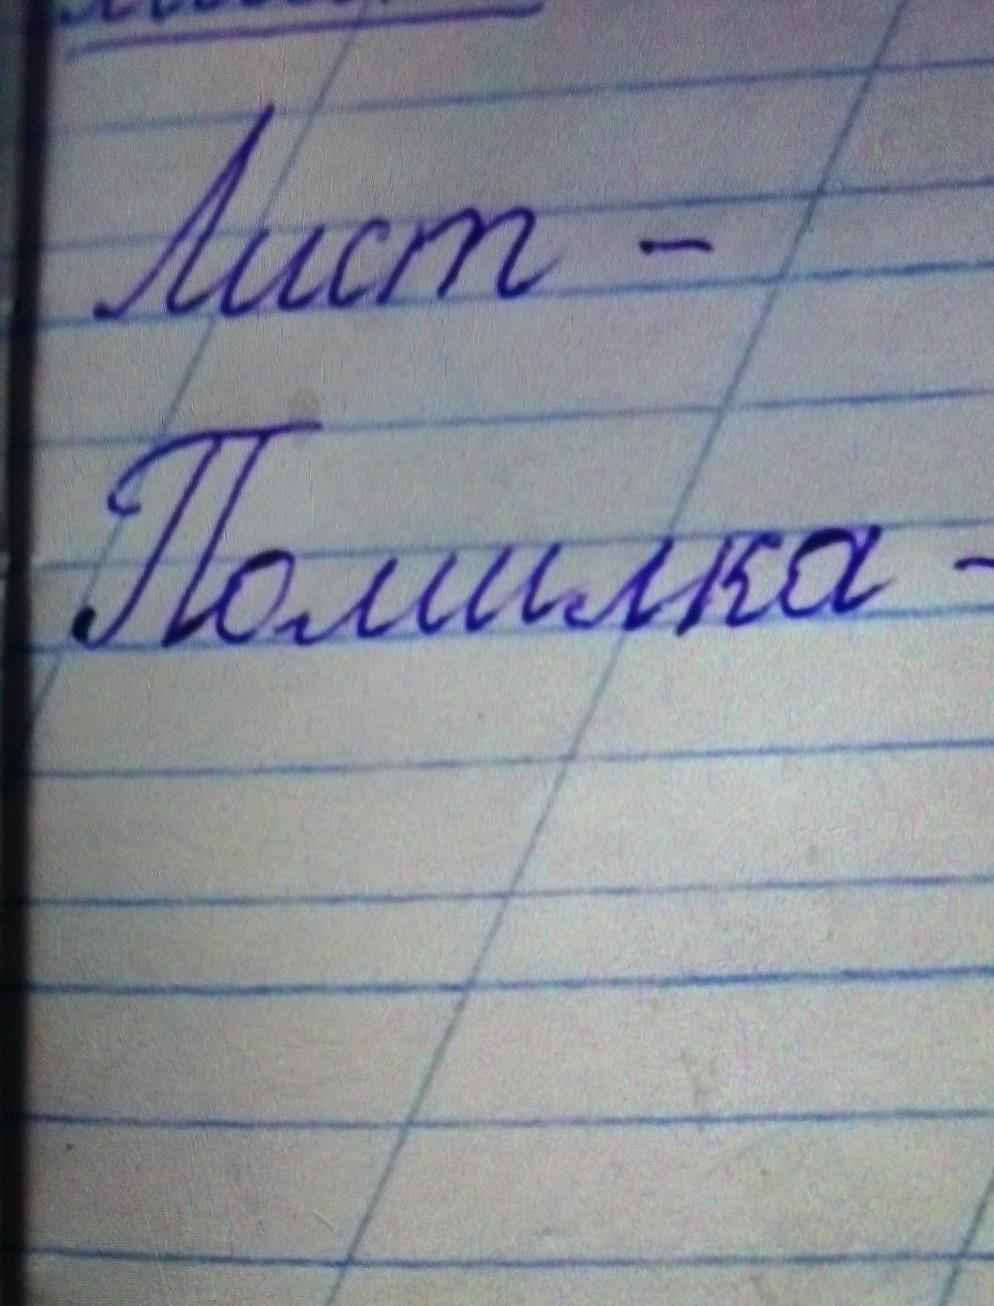 Лист -
Помилка -